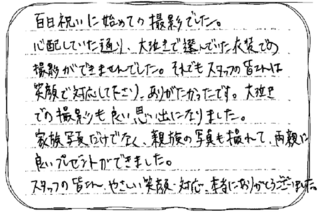 百日祝いに始めての撮影でした。
心配していた通り、大泣きで選んでいた衣装での
撮影ができませんでした。それでもスタッフの皆さんは
笑顔で対応してくださり、ありがたかったです。大泣き
での撮影も良い思い出になりました。
家族写真だけでなく、親族の写真も撮れて、両親に
良いプレゼントができました。
スタッフの皆さん、やさしい笑顔・対応、本当にありがとうございました